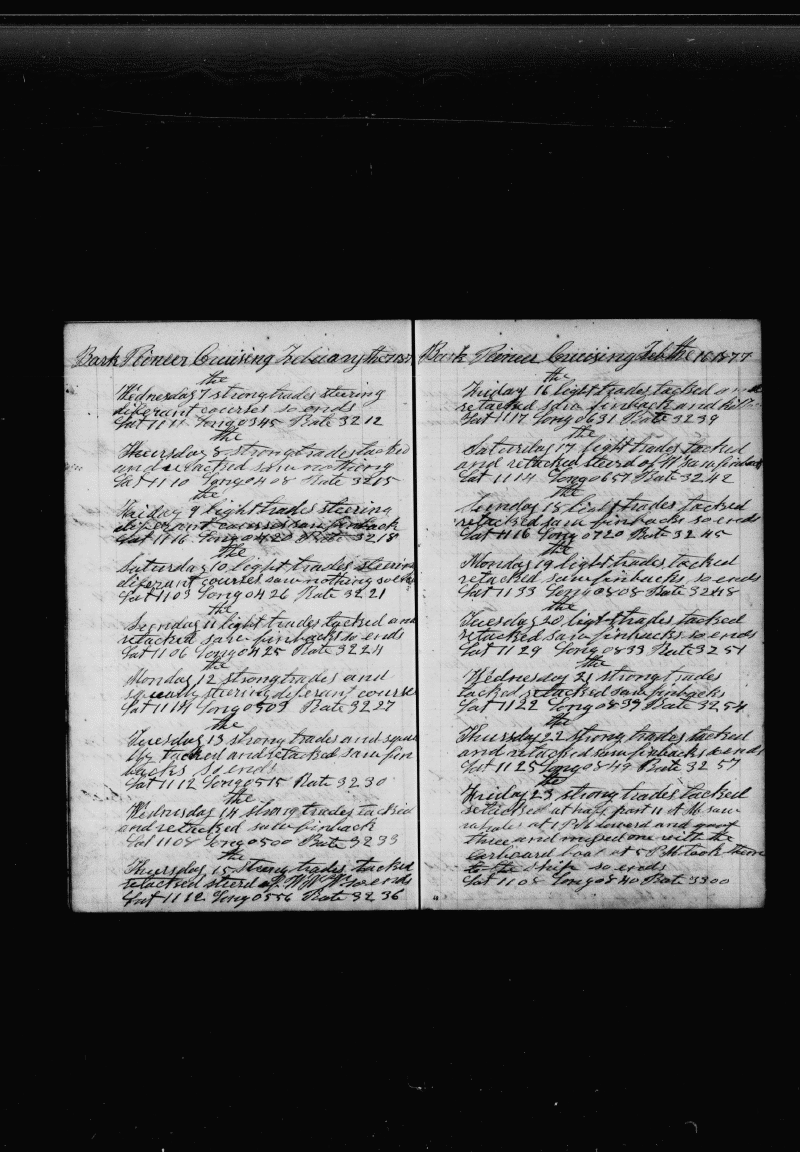 Bark Pioneer Cruising Febuary the 7 1877
the
Wednesday 7 strong trades steering
diferant courses so ends
Lat 11 11 Long 03 45 Rate 32 12
the
Thursday 8 strong trades tacked
and retacked saw nothing
Lat 11 10 Long 04 08 Rate 32 15
the
Friday 9 light trades steering
diferant courses saw finback
Lat 11 16 Long 04 20 Rate 32 18
the
Saturday 10 light trades steering
diferant courses saw nothing so ends
Lat 11 03 Long 04 26 Rate 32 21
the
Sunday 11 light trades tacked and
retacked saw finbacks so ends
Lat 11 06 Long 04 25 Rate 32 24
the
Monday 12 strong trades and
squally steering diferant course
Lat 11 14 Long 05 09 Rate 32 27
the
Tuesday 13 strong trades and squa
lly tacked and retacked saw fin
backs so ends
Lat 11 12 Long 05 15 Rate 32 30
the
Wednesday 14 strong trades tacked
and retacked saw finback
Lat 11 08 Long 05 00 Rate 32 33
the
Thursday 15 strong trades tacked
retacked steerd of W so ends
Lat 11 12 Long 05 56 Rate 32 36
Bark Pioneer Cruising Feb the 16 1877
the
Friday 16 light trades tacked and
retacked saw finback and
Lat 11 17 Long 06 31 Rate 32 39
the
Saturday 17 light trades tacked
and retacked steerd of W saw finback
Lat 11 14 Long 06 57 Rate 32 42
the
Sunday 18 light trades tacked
retacked saw finbacks so ends
Lat 11 16 Long 07 20 Rate 32 45
the
Monday 19 light trades tacked
retacked saw finbacks so ends
Lat 11 33 Long 08 08 Rate 32 48
the
Tuesday 20 light trades tacked
retacked saw finbacks so ends
Lat 11 29 Long 08 33 Rate 32 51
the
Wednesday 21 strong trades
tacked retacked saw finbacks
Lat 11 22 Long 08 39 Rate 32 54
the
Thursday 22 strong trades tacked
and retacked saw finbacks so ends
Lat 11 25 Long 08 49 Rate 32 57
the
Friday 23 strong trades tacked
retacked at half part 11 A M saw
whales at 1 P M lowerd and
three and missed one with the
Larboard boat at 5 P M took them
to the ship so ends
Lat 11 08 Long 08 40 Rate 33 00